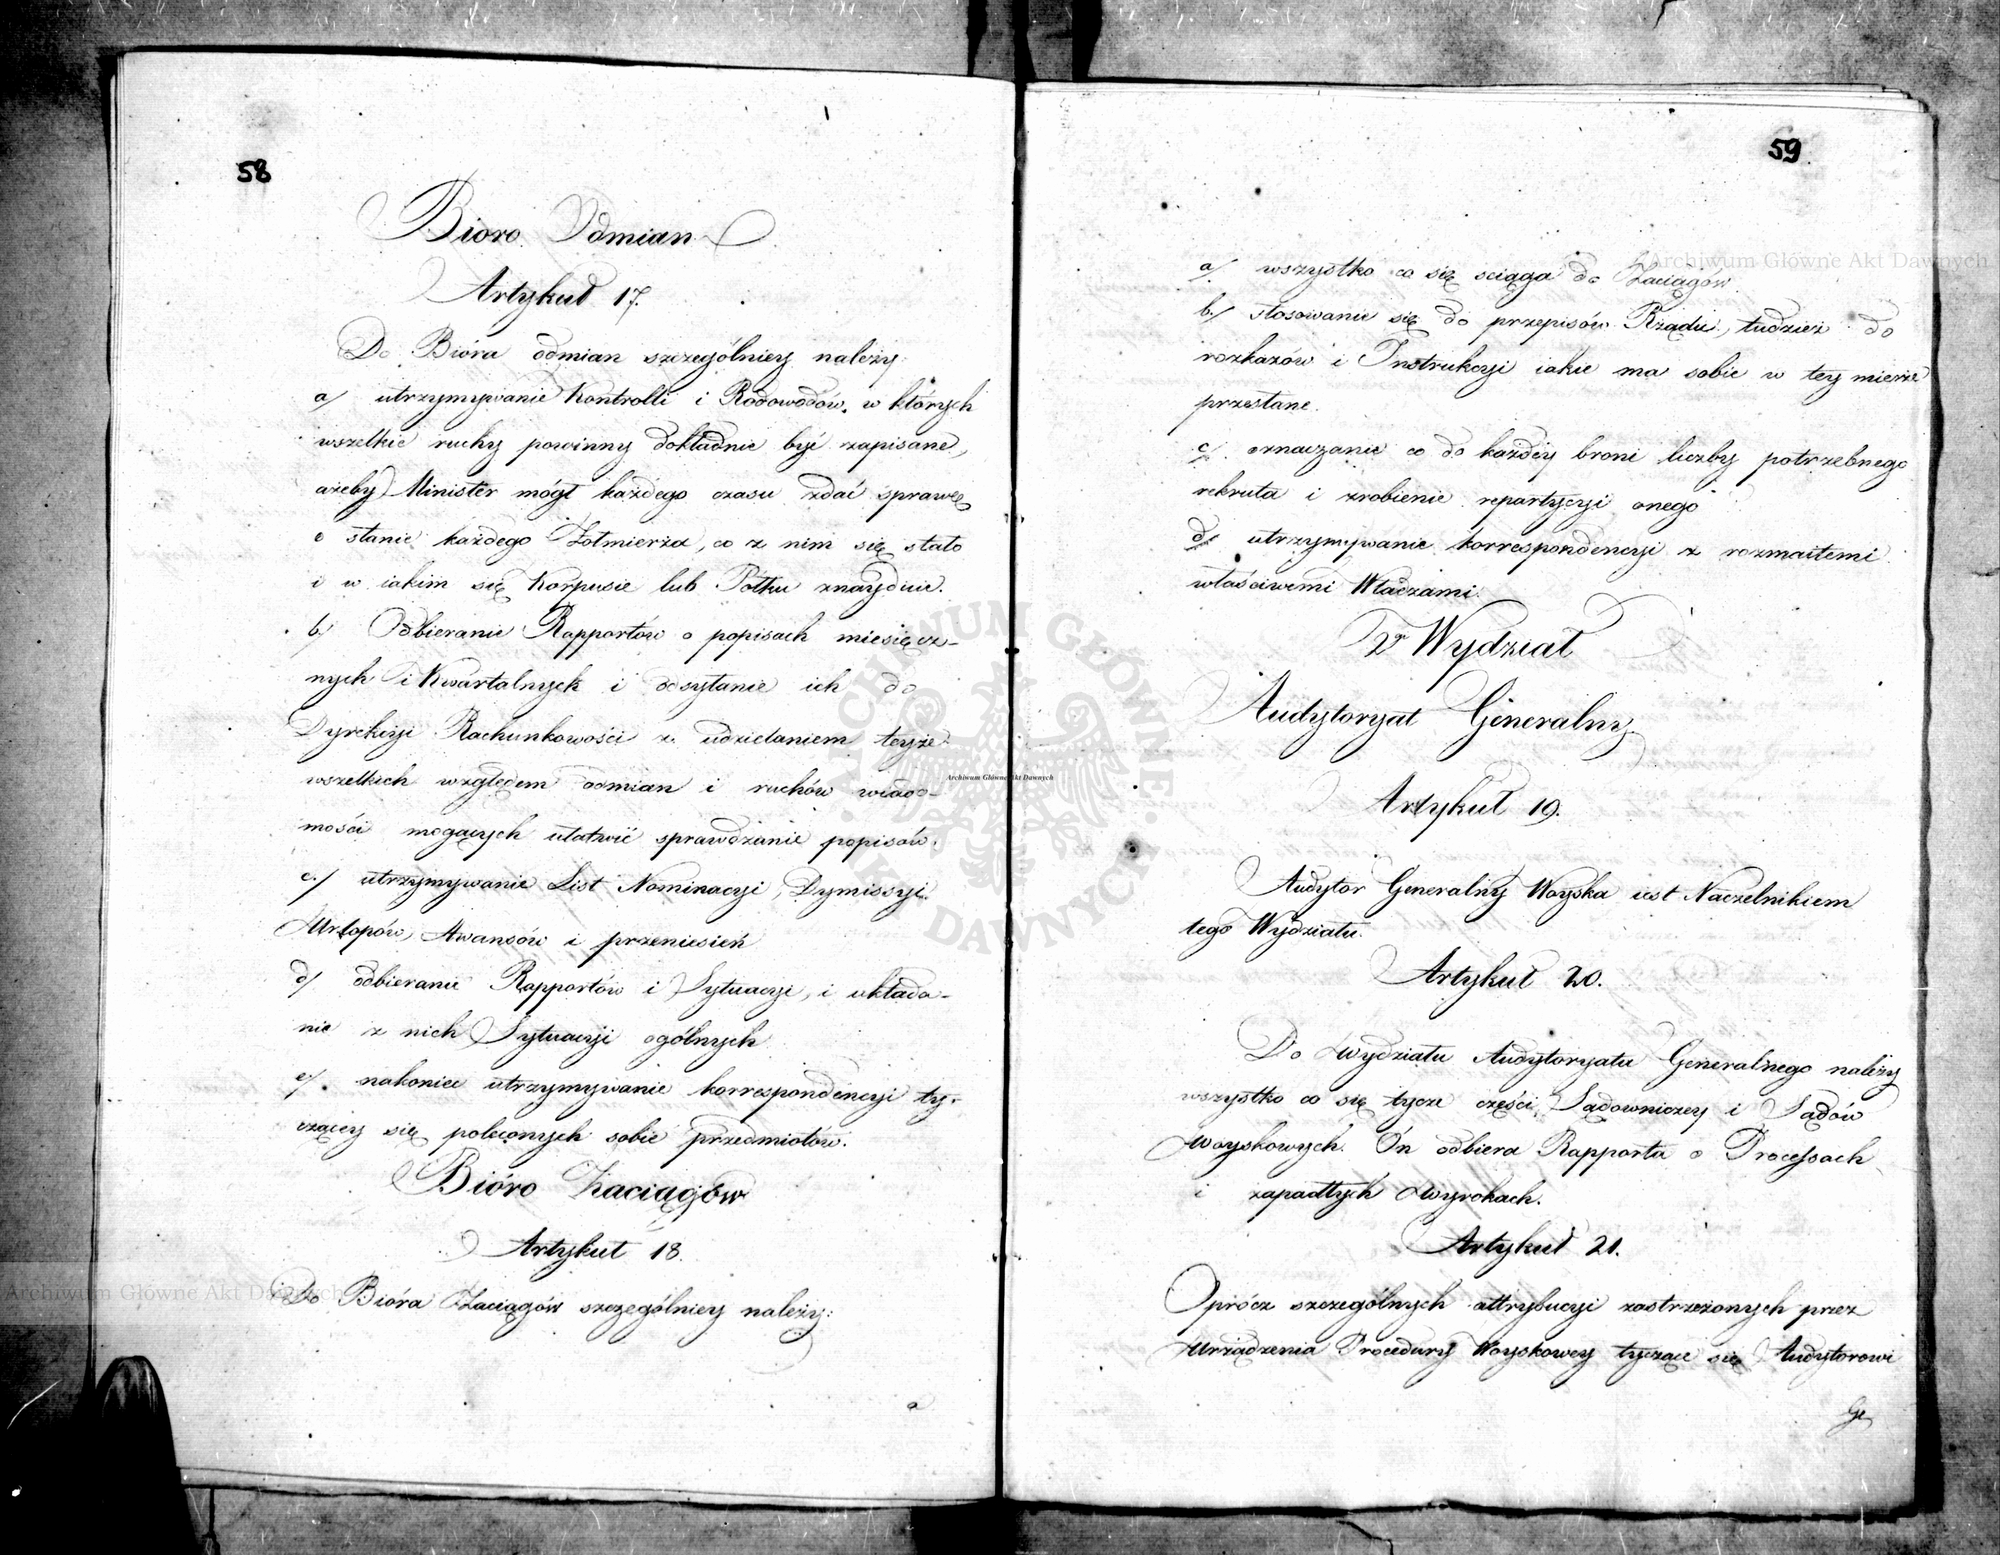 58
Bioro Odmian
Artykuł 17.
Do Bióra odmian szczególniey należy:
a/ utrzymywanie Kontrolli i Rodowodów, w których
wszelkie ruchy powinny dokładnie być zapisane,
ażeby Minister mógł każdego czasu zdać sprawę
o stanie każdego Żołnierza, co z nim się stało
i w iakim się Korpusie lub Półku znayduie.
b/ Odbieranie Rapportów o popisach miesięcz-
nych i Kwartalnych i odsyłanie ich do
Dyrekcyi Rachunkowości z udzielaniem teyże
wszelkich względem odmian i ruchów wiado-
mości mogących ułatwić sprawdzanie popisów.
c./ utrzymywanie List Nominacyi, Dymissyi.
Urlopów, Awansów i przeniesień
d/ odbieranie Rapportów i Sytuacyi, i układa-
nie z nich Sytuacyi ogólnych
e/. nakoniec utrzymywanie korrespondencyi ty-
czącey się poleconych sobie przedmiotów.
Bióro Zaciągów
Artykuł 18.
Do Bióra Zaciągów szczególniey należy:
a
59
a/ wszystko co się sciąga do Zaciągów.
b./ stosowanie się do przepisów Rządu, tudzież do
rozkazów i Instrukcyi iakie ma sobie w tey mierze
przesłane.
c/. oznaczanie co do każdéy broni liczby potrzebnego
rekruta i zrobienie repartycyi onego
d/ utrzymywanie korrespondencyi z rozmaitemi
właściwemi Władzami.
2r Wydział
Audytoryat Generalny.
Artykuł 19.
Audytor Generalny Woyska iest Naczelnikiem
tego Wydziału.
Artykuł 20.
Do Wydziału Audytoryatu Generalnego należy
wszystko co się tycze części Sądowniczey i Sądów
Woyskowych. On odbiera Rapporta o Processach
i zapadłych wyrokach.
Artykuł 21.
Oprócz szczególnych attrybucyi zastrzeżonych przez
Urządzenia Procedury Woyskowey tyczące się Audytorowi
Ge
Archiwum Główne Akt Dawnych
ARCHIWUM GŁÓWNE AKT DAWNYCH
Archiwum Główne Akt Dawnych
Archiwum Główne Akt Dawnych